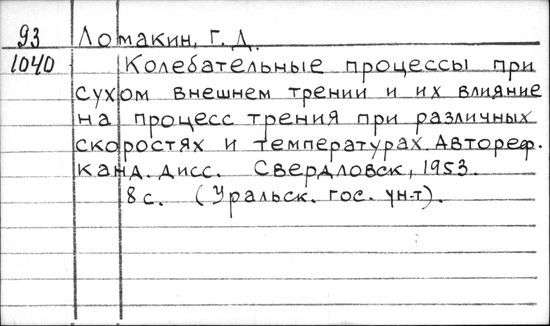 93 Ломакин, Г. Д.
1040 Колебательные процессы при
сухом внешнем трении и их влияние
на процесс трения при различных
скоростях и температурах. Автореф.
канд. дисс. Свердловск, 1953.
8 с. (Уральск. гос. ун-т).